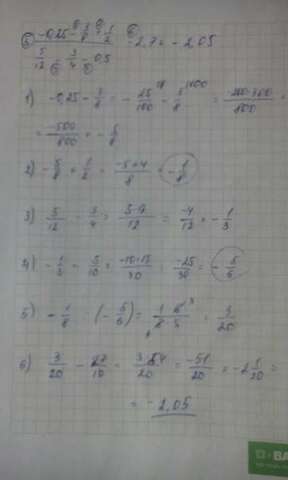 -0,25 - 3/8 + 1/2
5/12 - 3/4 - 0,5
- 2,7 = - 2,05
1) -0,25 - 3/8 = - 25/100 - 3/8 = -200-300/800 =
= -500/800 = - 5/8
2) - 5/8 + 1/2 = -5+4/8 = - 1/8
3) 5/12 - 3/4 = 5-9/12 = -4/12 = - 1/3
4) - 1/3 - 5/10 = -10-15/30 = -25/30 = - 5/6
5) - 1/8 : (- 5/6) = 1/8 · 6/5 = 3/20
6) 3/20 - 27/10 = 3-54/20 = -51/20 = -2 1/20 =
= -2,05